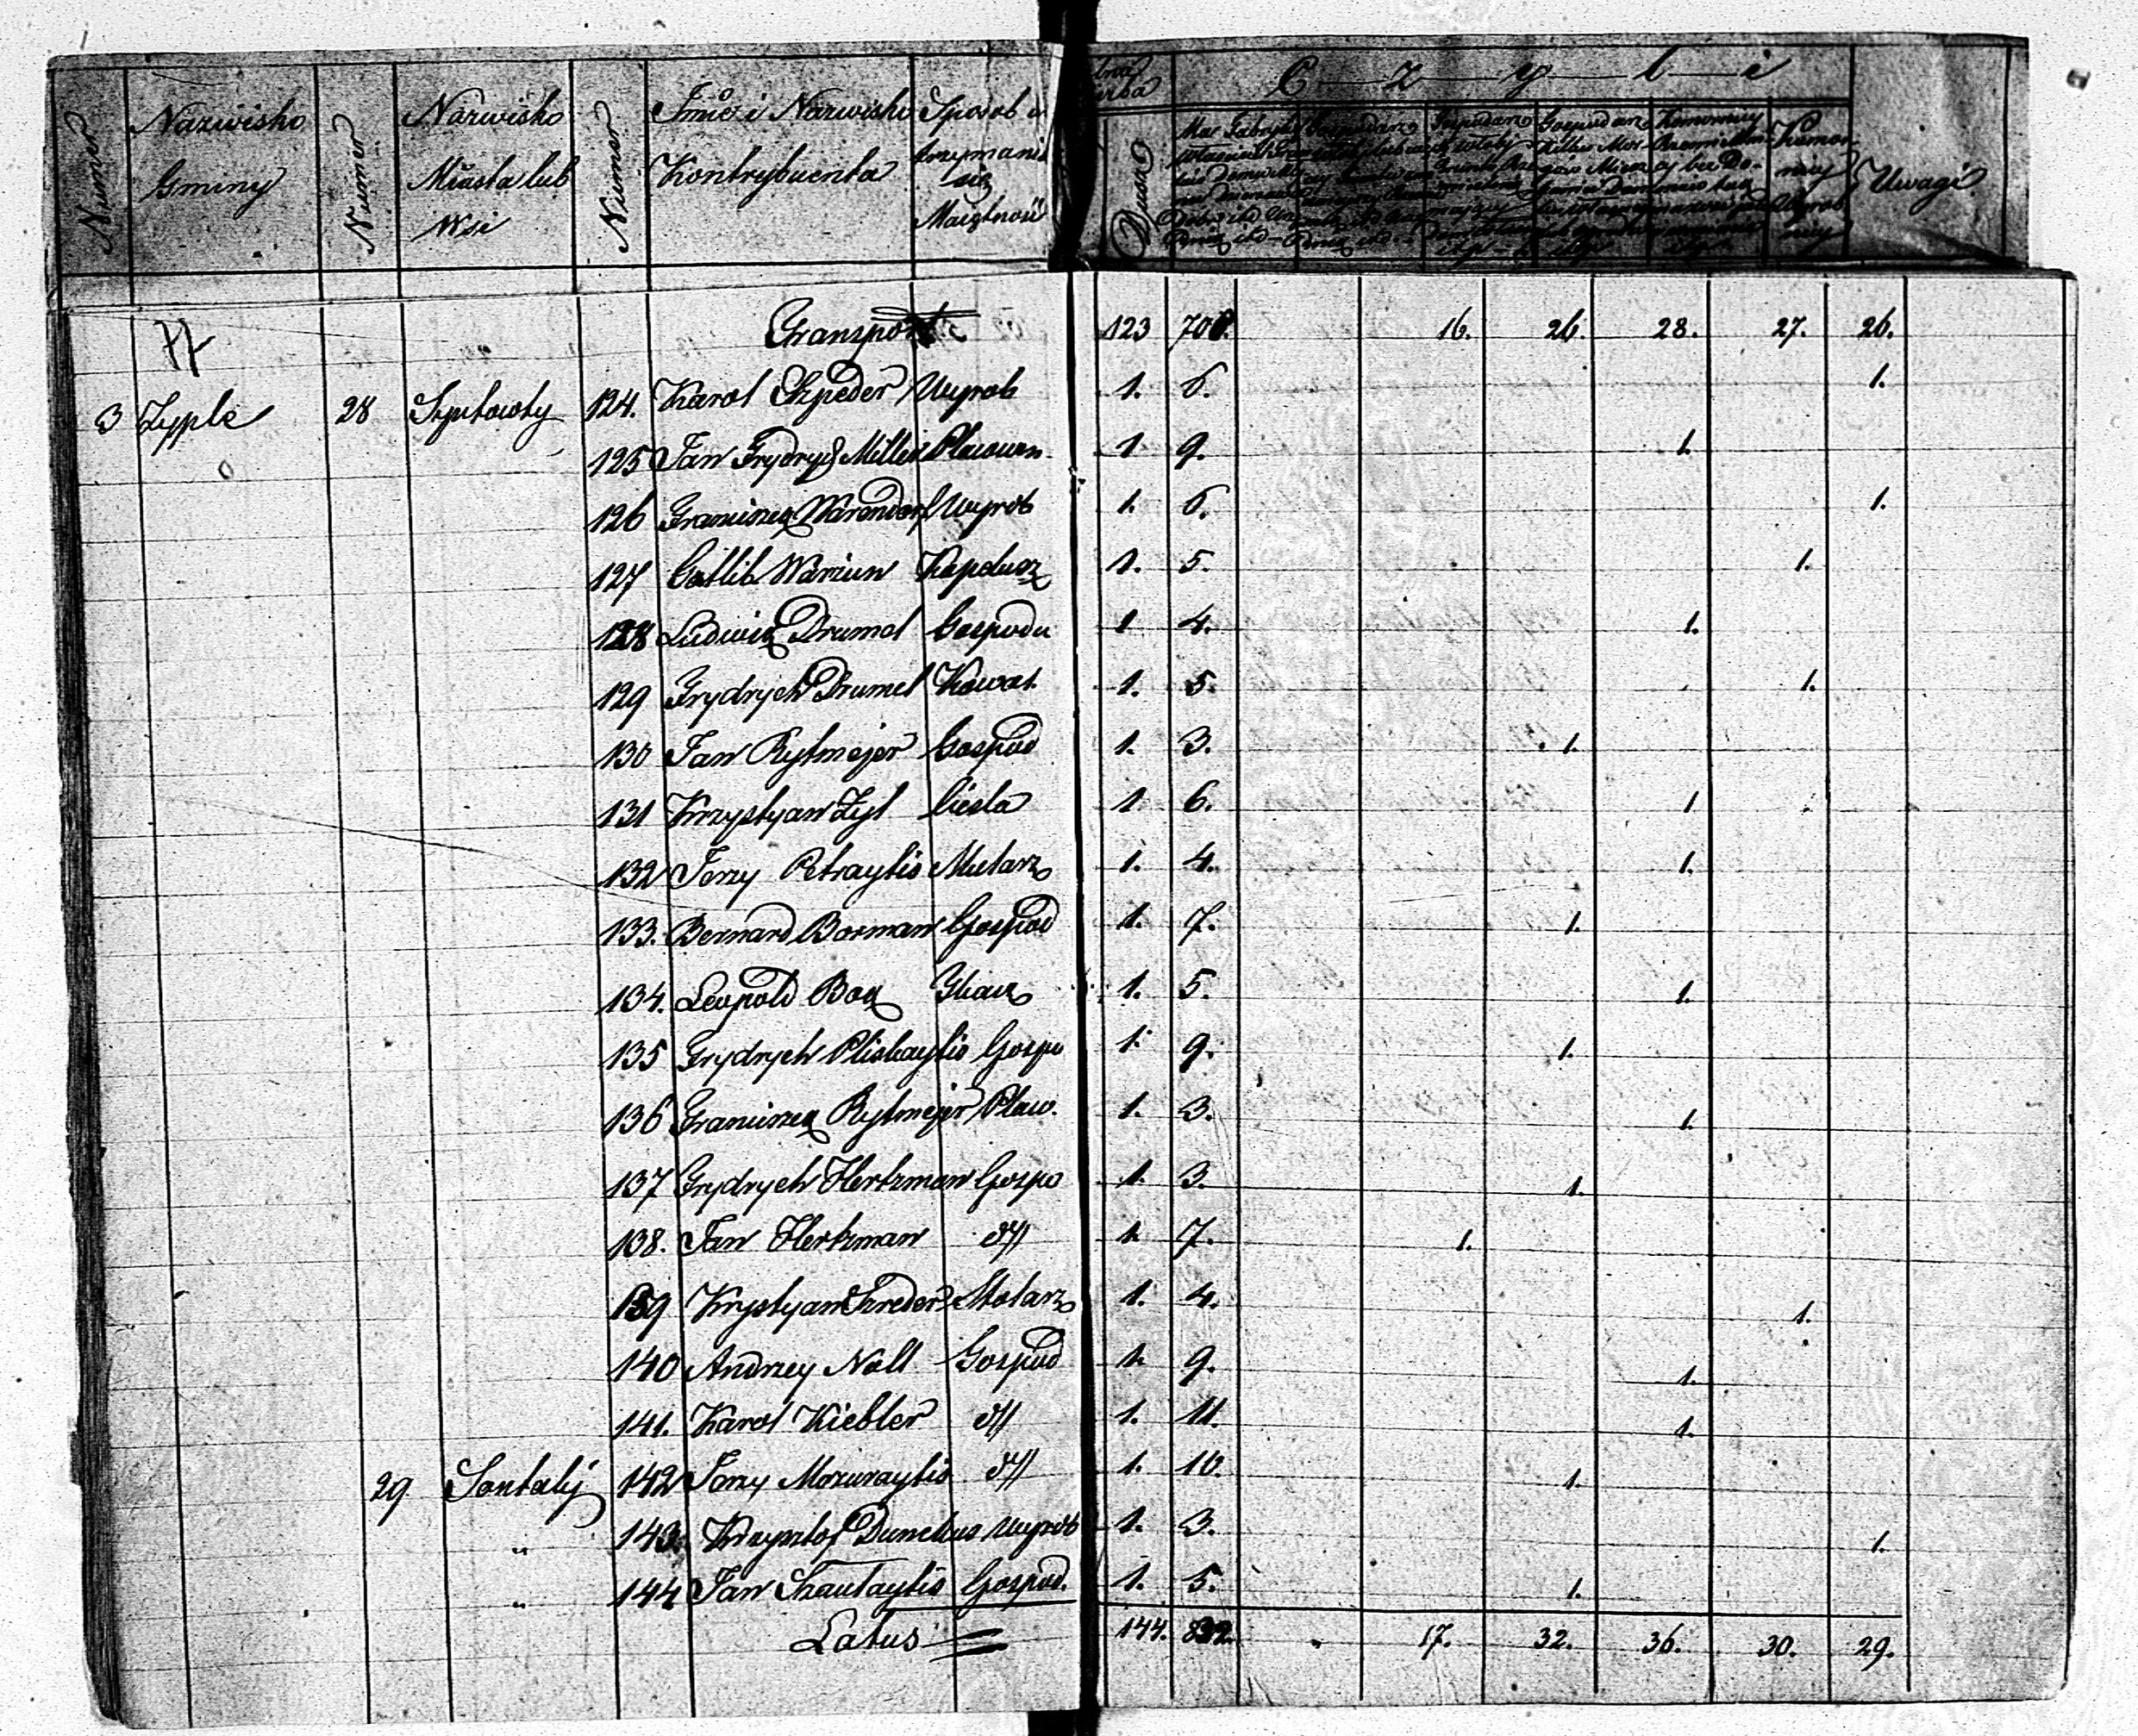 Numer Nazwisko Gminy Numer Nazwisko Miasta lub Wsi Numer Imie i Nazwisko Kontrybuenta Sposob utrzymania się Maiętności Dusze C z y l i Uwagi
Transport 123 706. 16. 26. 28. 27. 26.
3 Zyple 28 Szyntowty 124. Karol Szpeder Wyrob 1. 6. 1.
125 Jan Frydrych Miller Pławown. 1 9. 1.
126 Franciszek Warendorf Wyrob 1. 6. 1.
127 Gotlib Wariun Kapelusz 1. 5. 1.
128 Ludwik Drumel Gospoda 1 4. 1.
129 Frydrych Drumel Kowal. 1. 5. 1.
130 Jan Rytmejer Gospod 1. 3. 1.
131 Krzystyan Zyl Ciesla 1 6. 1
132 Jerzy Petraytis Mularz 1. 4. 1.
133. Bernard Borman Gospod 1. 7. 1.
134. Leopold Bok Tkacz 1. 5. 1.
135 Frydrych Pliskaytis Gospo 1. 9. 1.
136 Franciszek Rytmejer Pław. 1. 3. 1.
137 Frydrych Hertzman Gospo 1. 3. 1.
138. Jan Hertzman d// 1. 7. 1.
139 Krystyan Szreder Stolarz 1. 4. 1.
140 Andrzey Noll Gospod 1. 9. 1.
141. Karol Kiebler d// 1. 11. 1.
29. Santaly 142 Jerzy Mozuraytis d// 1. 10. 1.
" 143. Krzysztof Dunelkus Wyrob 1. 3. 1.
" 144 Jan Szautaytis Gospod. 1. 5. 1.
Latus 144. 832. 17. 32. 36. 30. 29.